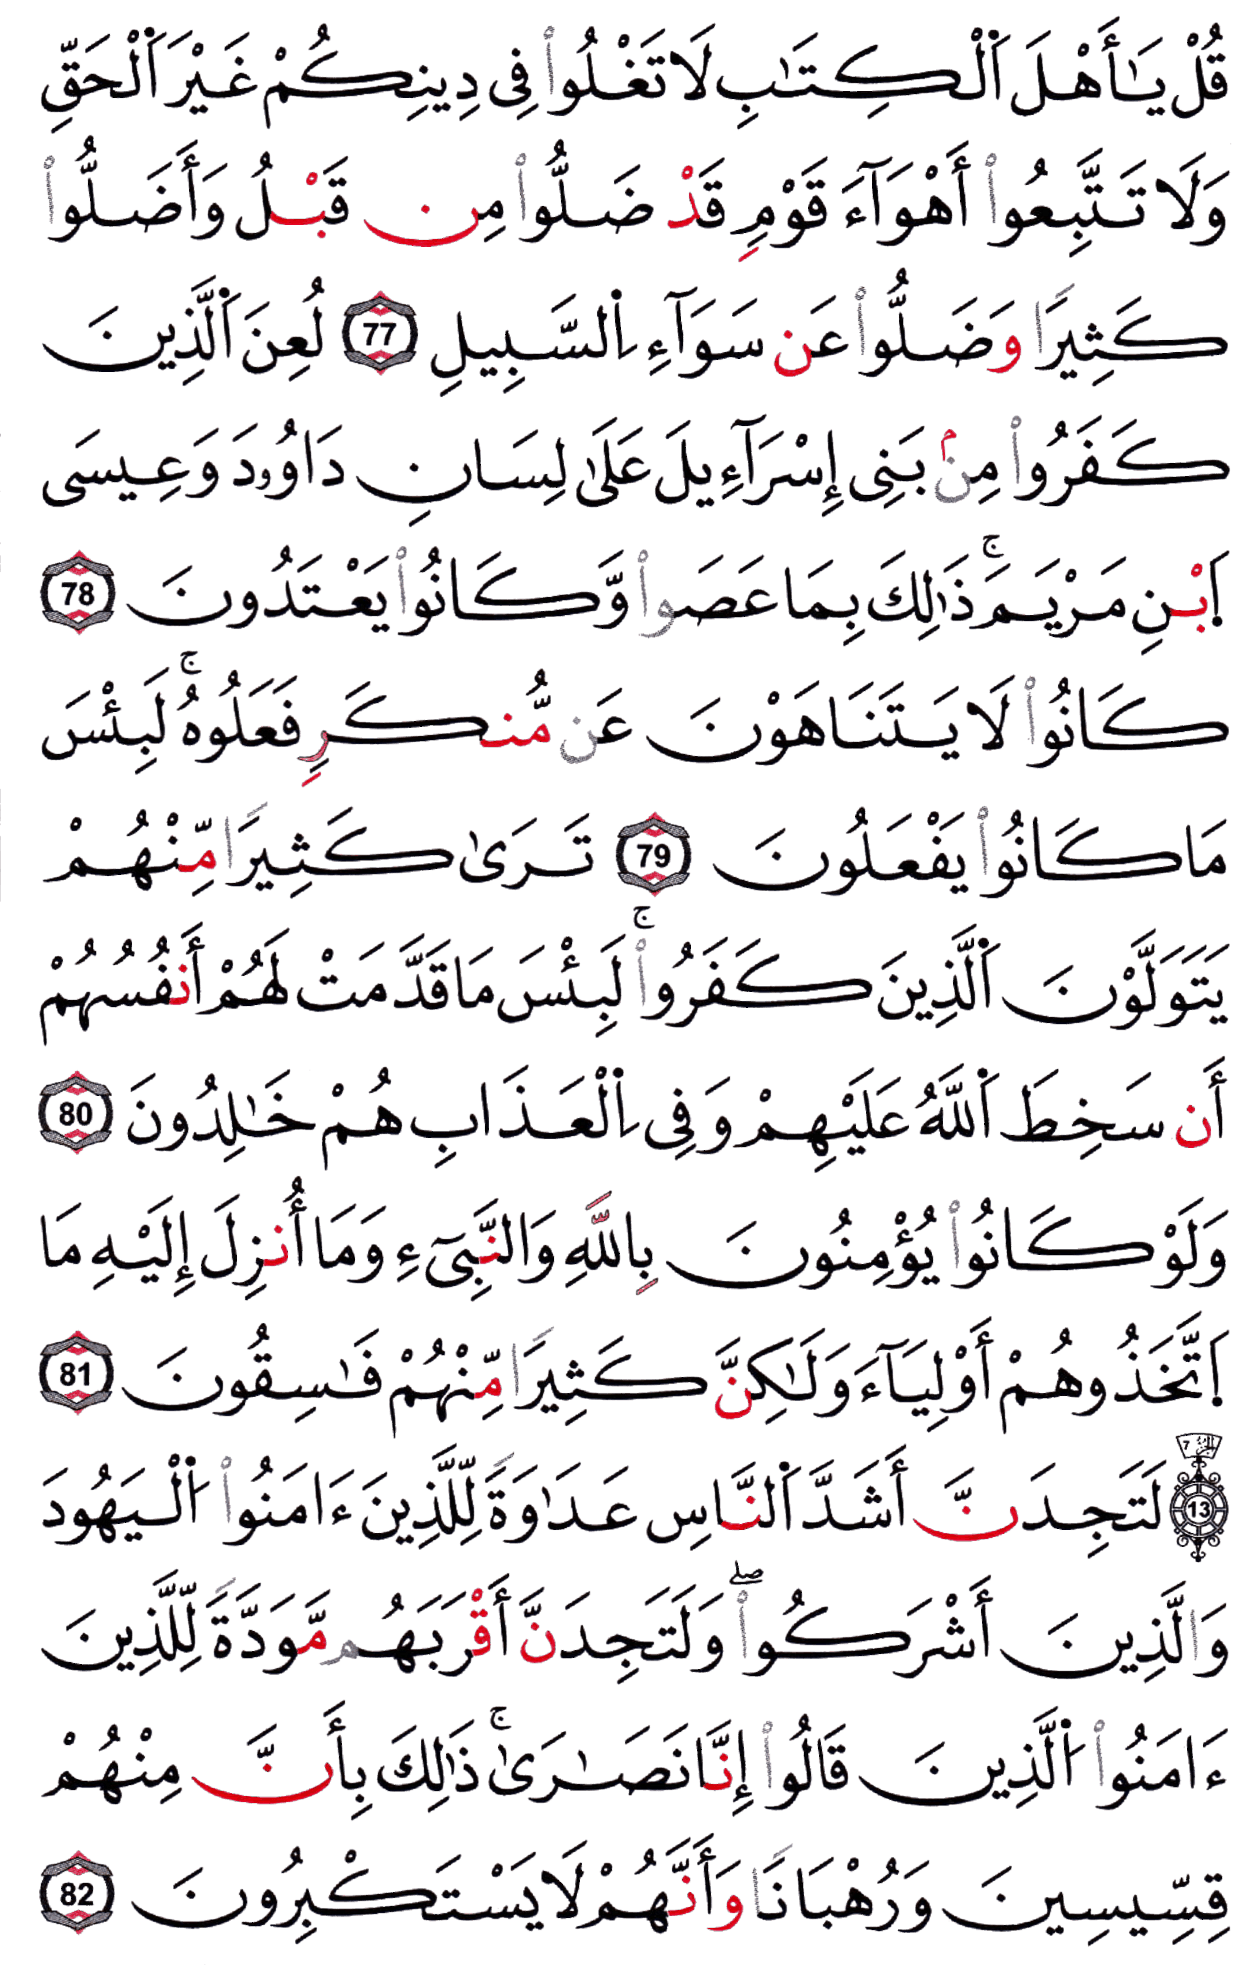 قُلْ يَـٰأَهْلَ اَ۬لْكِتَـٰبِ لَا تَغْلُواْ فِى دِينِكُمْ غَيْرَ اَ۬لْحَقِّ
وَلَا تَتَّبِعُواْ أَهْوَآءَ قَوْمٍ قَدْ ضَلُّواْ مِن قَبْلُ وَأَضَلُّواْ
كَثِيرًا وَضَلُّواْ عَن سَوَآءِ اِ۬لسَّبِيلِ 77 لُعِنَ اَ۬لَّذِينَ
كَفَرُواْ مِنۢ بَنِى إِسْرَآءِيلَ عَلَىٰ لِسَانِ دَاوُۥدَ وَعِيسَى
اَ۪بْنِ مَرْيَمَ ۚ ذَٰلِكَ بِمَا عَصَواْ وَّكَانُواْ يَعْتَدُونَ 78
كَانُواْ لَا يَتَنَاهَوْنَ عَن مُّنكَرٍ فَعَلُوهُ ۚ لَبِئْسَ
مَا كَانُواْ يَفْعَلُونَ 79 تَرَىٰ كَثِيرًا مِّنْهُمْ
يَتَوَلَّوْنَ اَ۬لَّذِينَ كَفَرُواْ ۚ لَبِئْسَ مَا قَدَّمَتْ لَهُمْ أَنفُسُهُمْ
أَن سَخِطَ اَ۬للَّهُ عَلَيْهِمْ وَفِى اِ۬لْعَذَابِ هُمْ خَـٰلِدُونَ 80
وَلَوْ كَانُواْ يُؤْمِنُونَ بِاللَّهِ وَالنَّبِىٓءِ وَمَا أُنزِلَ إِلَيْهِ مَا
اَ۪تَّخَذُوهُمْ أَوْلِيَآءَ وَلَـٰكِنَّ كَثِيرًا مِّنْهُمْ فَـٰسِقُونَ 81
الجزء 7 13 لَتَجِدَنَّ أَشَدَّ اَ۬لنَّاسِ عَدَٰوَةً لِّلَّذِينَ ءَامَنُواْ اُ۬لْيَهُودَ
وَالَّذِينَ أَشْرَكُواْ ۖ وَلَتَجِدَنَّ أَقْرَبَهُم مَّوَدَّةً لِّلَّذِينَ
ءَامَنُواْ اُ۬لَّذِينَ قَالُواْ إِنَّا نَصَـٰرَىٰ ۚ ذَٰلِكَ بِأَنَّ مِنْهُمْ
قِسِّيسِينَ وَرُهْبَانًا وَأَنَّهُمْ لَا يَسْتَكْبِرُونَ 82